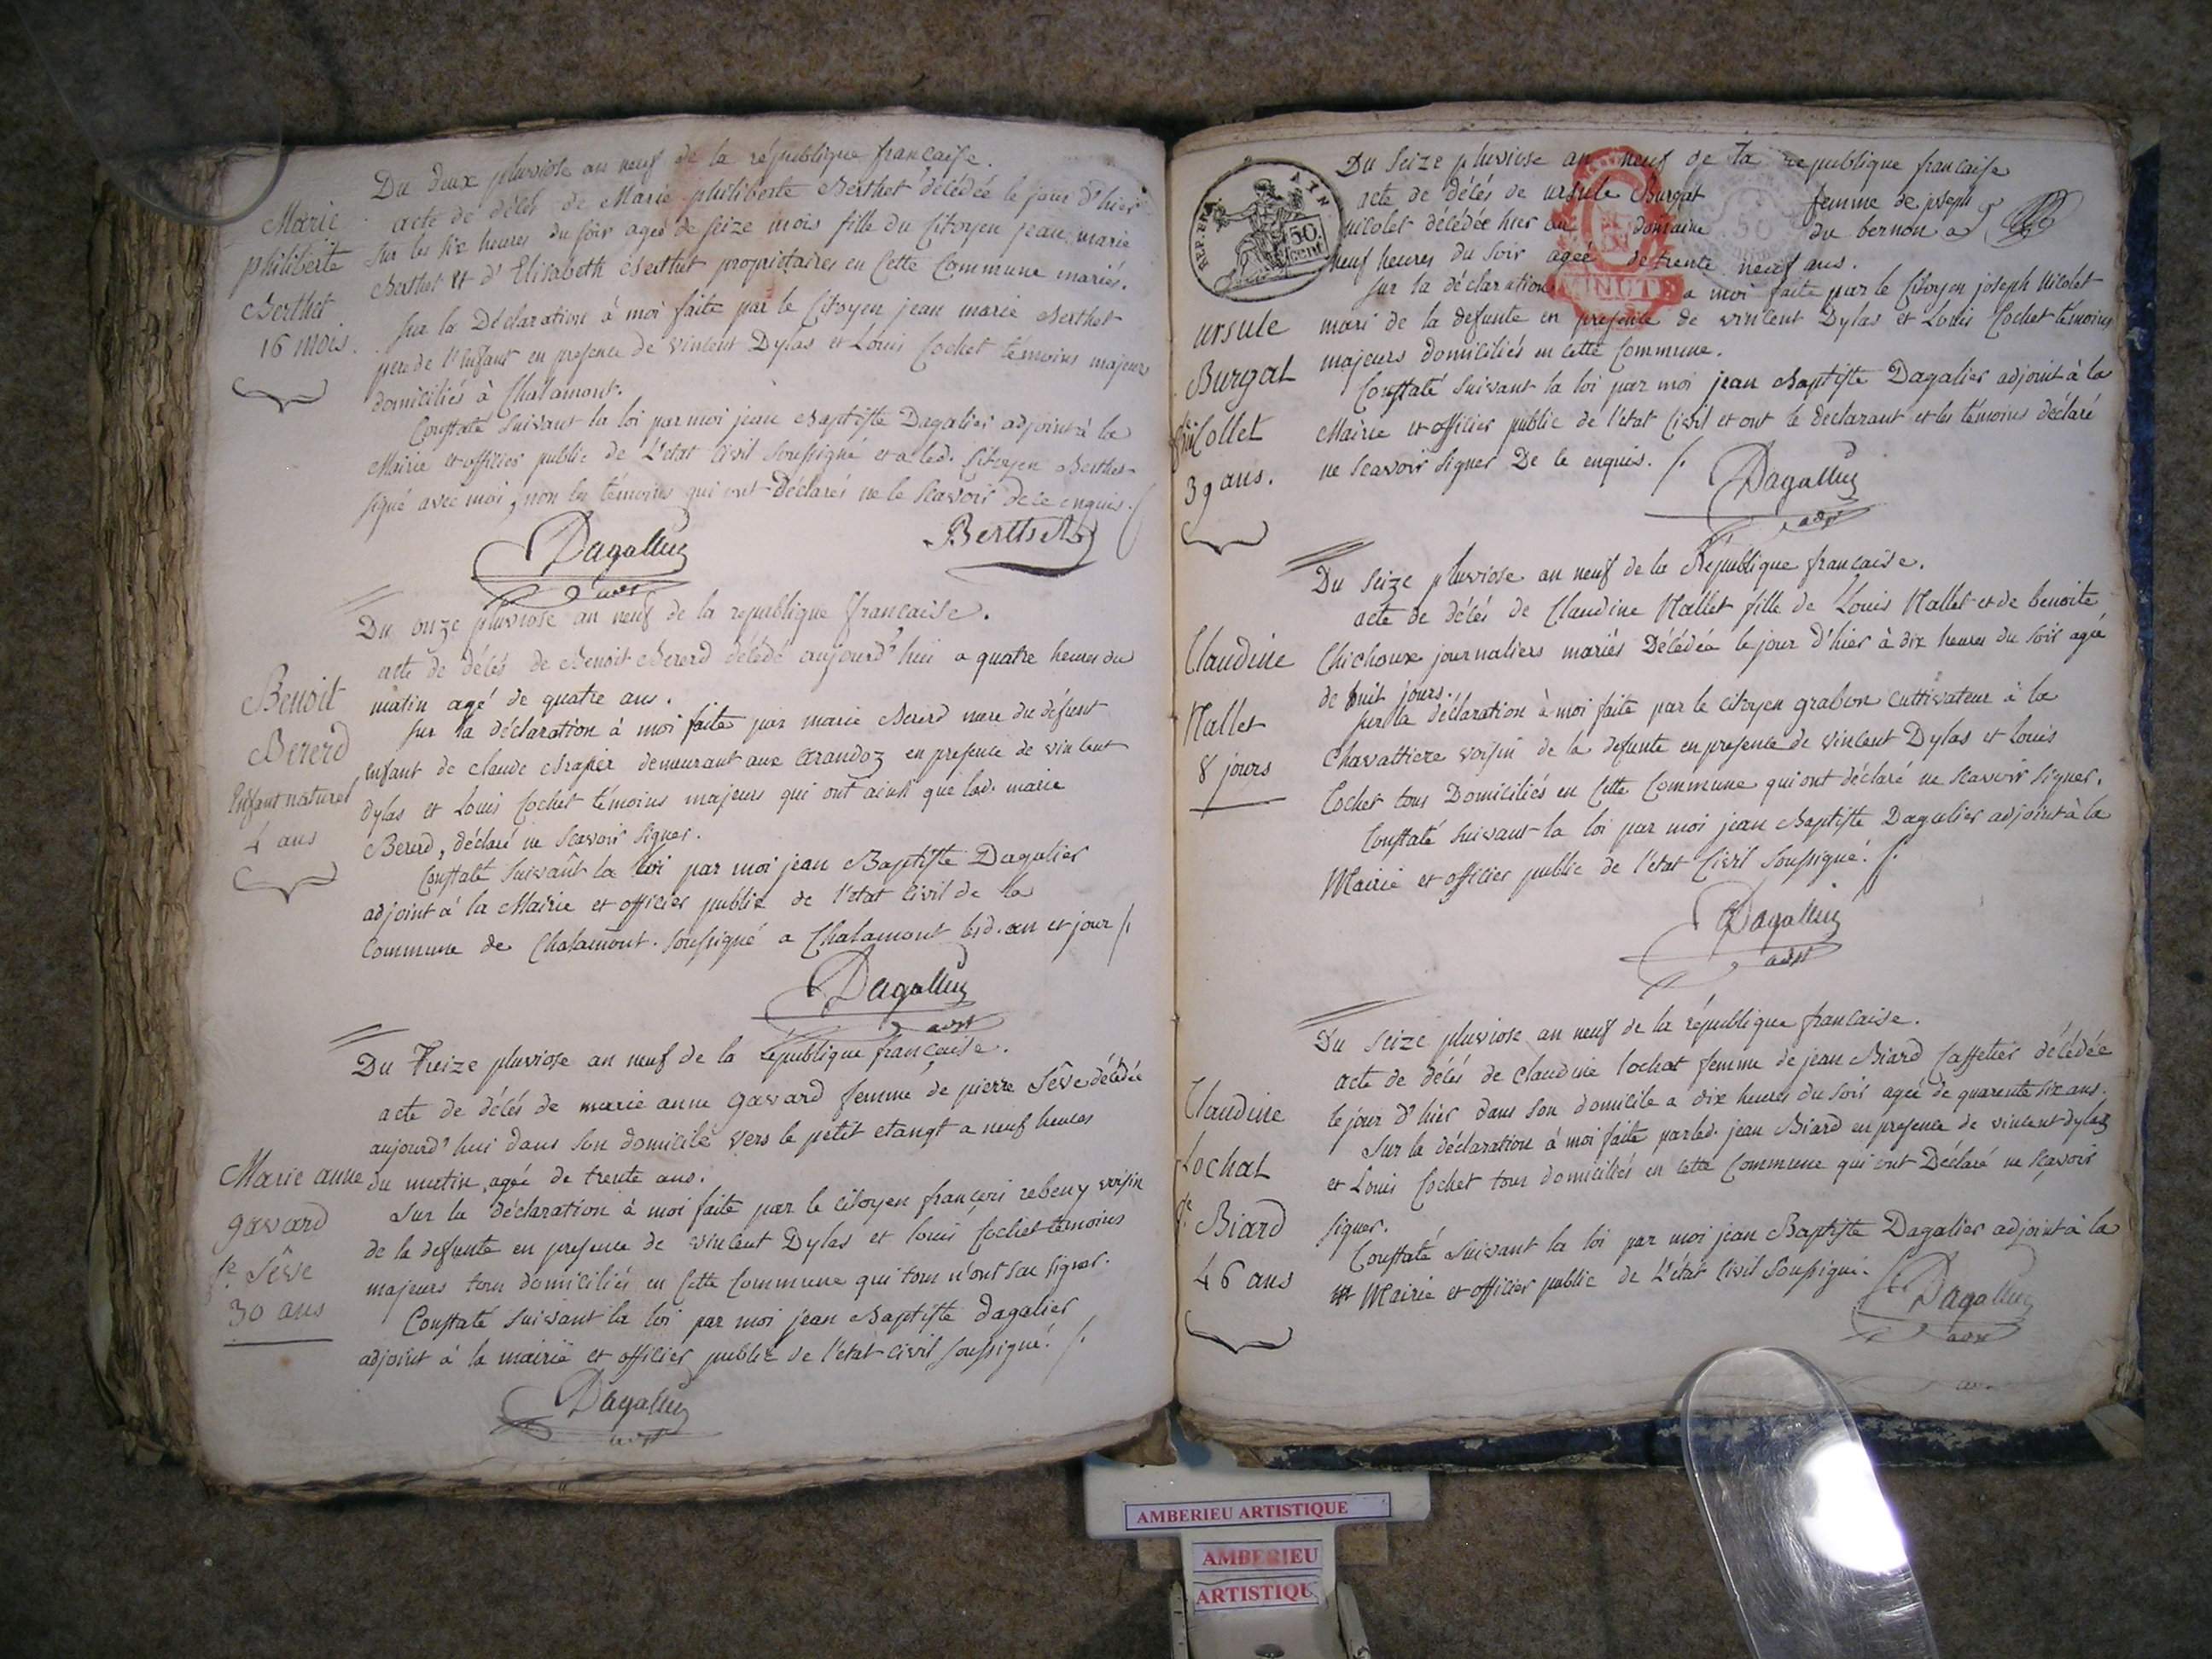 Du deux pluviose an neuf de la république francaise.
acte de décés de Marie philiberte Berthet décédée le jour d'hier
sur les six heures du soir ageé de seize mois fille du Citoyen jean marie
Berthet et d'Elisabeth Berthet proprietaires en Cette Commune mariés.
sur la Déclaration à moi faite par le Citoyen jean marie Berthet
pere de l'enfant en presence de vincent Dylas et Louis Cochet témoins majeurs
domiciliés à Chalamont.
Constaté suivant la loi par moi jean Baptiste Dagalier adjoint à la
Mairie et officier public de L'etat Civil soussigné et a led. Citoyen Berthet
signé avec moi, non les témoins qui ont Déclarés ne le scavoir de ce enquis.
Marie
philiberte
Berthet
16 mois.
Dagallier
adjt
Berthet
Du onze pluviose an neuf de la republique francaise.
acte de décés de Benoit Bererd décédé aujourd'hui a quatre heures du
matin agé de quatre ans.
sur la déclaration à moi faite par marie Bererd mere du défunt
enfant de claude Brapier demeurant aux Grandoz en presence de vincent
Dylas et Louis Cochet témoins majeurs qui ont ainsi que lad. marie
Bererd, déclaré ne scavoir signer.
Constaté suivant la loi par moi jean Baptiste Dagalier
adjoint à la Mairie et officier public de l'etat civil de la
Commune de Chalamont. soussigné a Chalamont lesd. an et jour
Benoit
Bererd
Enfant naturel
4 ans
Dagallier
adjt
Du treize pluviose an neuf de la république francaise.
acte de décés de marie anne gavard femme de pierre Sêve décédée
aujourd'hui dans son domicile vers le petit etangt a neuf heures
du matin, ageé de trente ans.
sur la déclaration à moi faite par le citoyen francois rebeny voisin
de la defunte en presence de vincent Dylas et louis Cochet témoins
majeurs tous domiciliés en Cette Commune qui tous n'ont sçu signer.
Constaté suivant la loi par moi jean Baptiste dagalier
adjoint à la mairie et officier public de l'etat civil soussigné.
Marie anne
gavard
fe. Sêve
30 ans
Dagallier
adjt
REP. FRA.
50
cent
MINUTE
Du seize pluviose an neuf de la republique francaise
acte de décés de ursule Burgat femme de joseph
nicolet décédée hier au domaine du bernon a
neuf heures du soir ageé de trente neuf ans.
sur la déclaration a moi faite par le Citoyen joseph Nicolet
mari de la defunte en presence de vincent Dylas et Louis Cochet témoins
majeurs domiciliés en cette Commune.
Constaté suivant la loi par moi jean Baptiste Dagalier adjoint à la
Mairie et officier public de l'etat Civil et ont le declarant et les témoins déclaré
ne scavoir signer De ce enquis.
ursule
Burgat
fe. Nicollet
39 ans.
Dagallier
adjt
Du seize pluviose an neuf de la République francaise.
acte de décés de Claudine Nallet fille de Louis Nallet et de benoite
Chichoux journaliers mariés Décédée le jour d'hier à dix heures du soir ageé
de huit jours.
sur la déclaration à moi faite par le citoyen grabon cultivateur à la
Chavattiere voisin de la defunte en presence de vincent Dylas et Louis
Cochet tous Domiciliés en Cette Commune qui ont déclaré ne scavoir signer.
Constaté suivant la loi par moi jean Baptiste Dagalier adjoint à la
Mairie et officier public de l'etat Civil soussigné.
Claudine
Nallet
8 jours
Dagallier
adjt
Du seize pluviose an neuf de la république francaise.
acte de décés de claudine lochat femme de jean Biard Caffetier décédée
le jour d'hier dans son domicile a dix heures du soir ageé de quarente six ans.
sur la déclaration à moi faite par led. jean Biard en presence de vincent dylas
et Louis Cochet tous domiciliés en cette Commune qui ont Déclaré ne scavoir
signer.
Constaté suivant la loi par moi jean Baptiste Dagalier adjoint à la
Mairie et officier public de L'état civil soussigné.
Claudine
Lochat
fe. Biard
46 ans
Dagallier
adjt
AMBERIEU ARTISTIQUE
AMBERIEU
ARTISTIQU